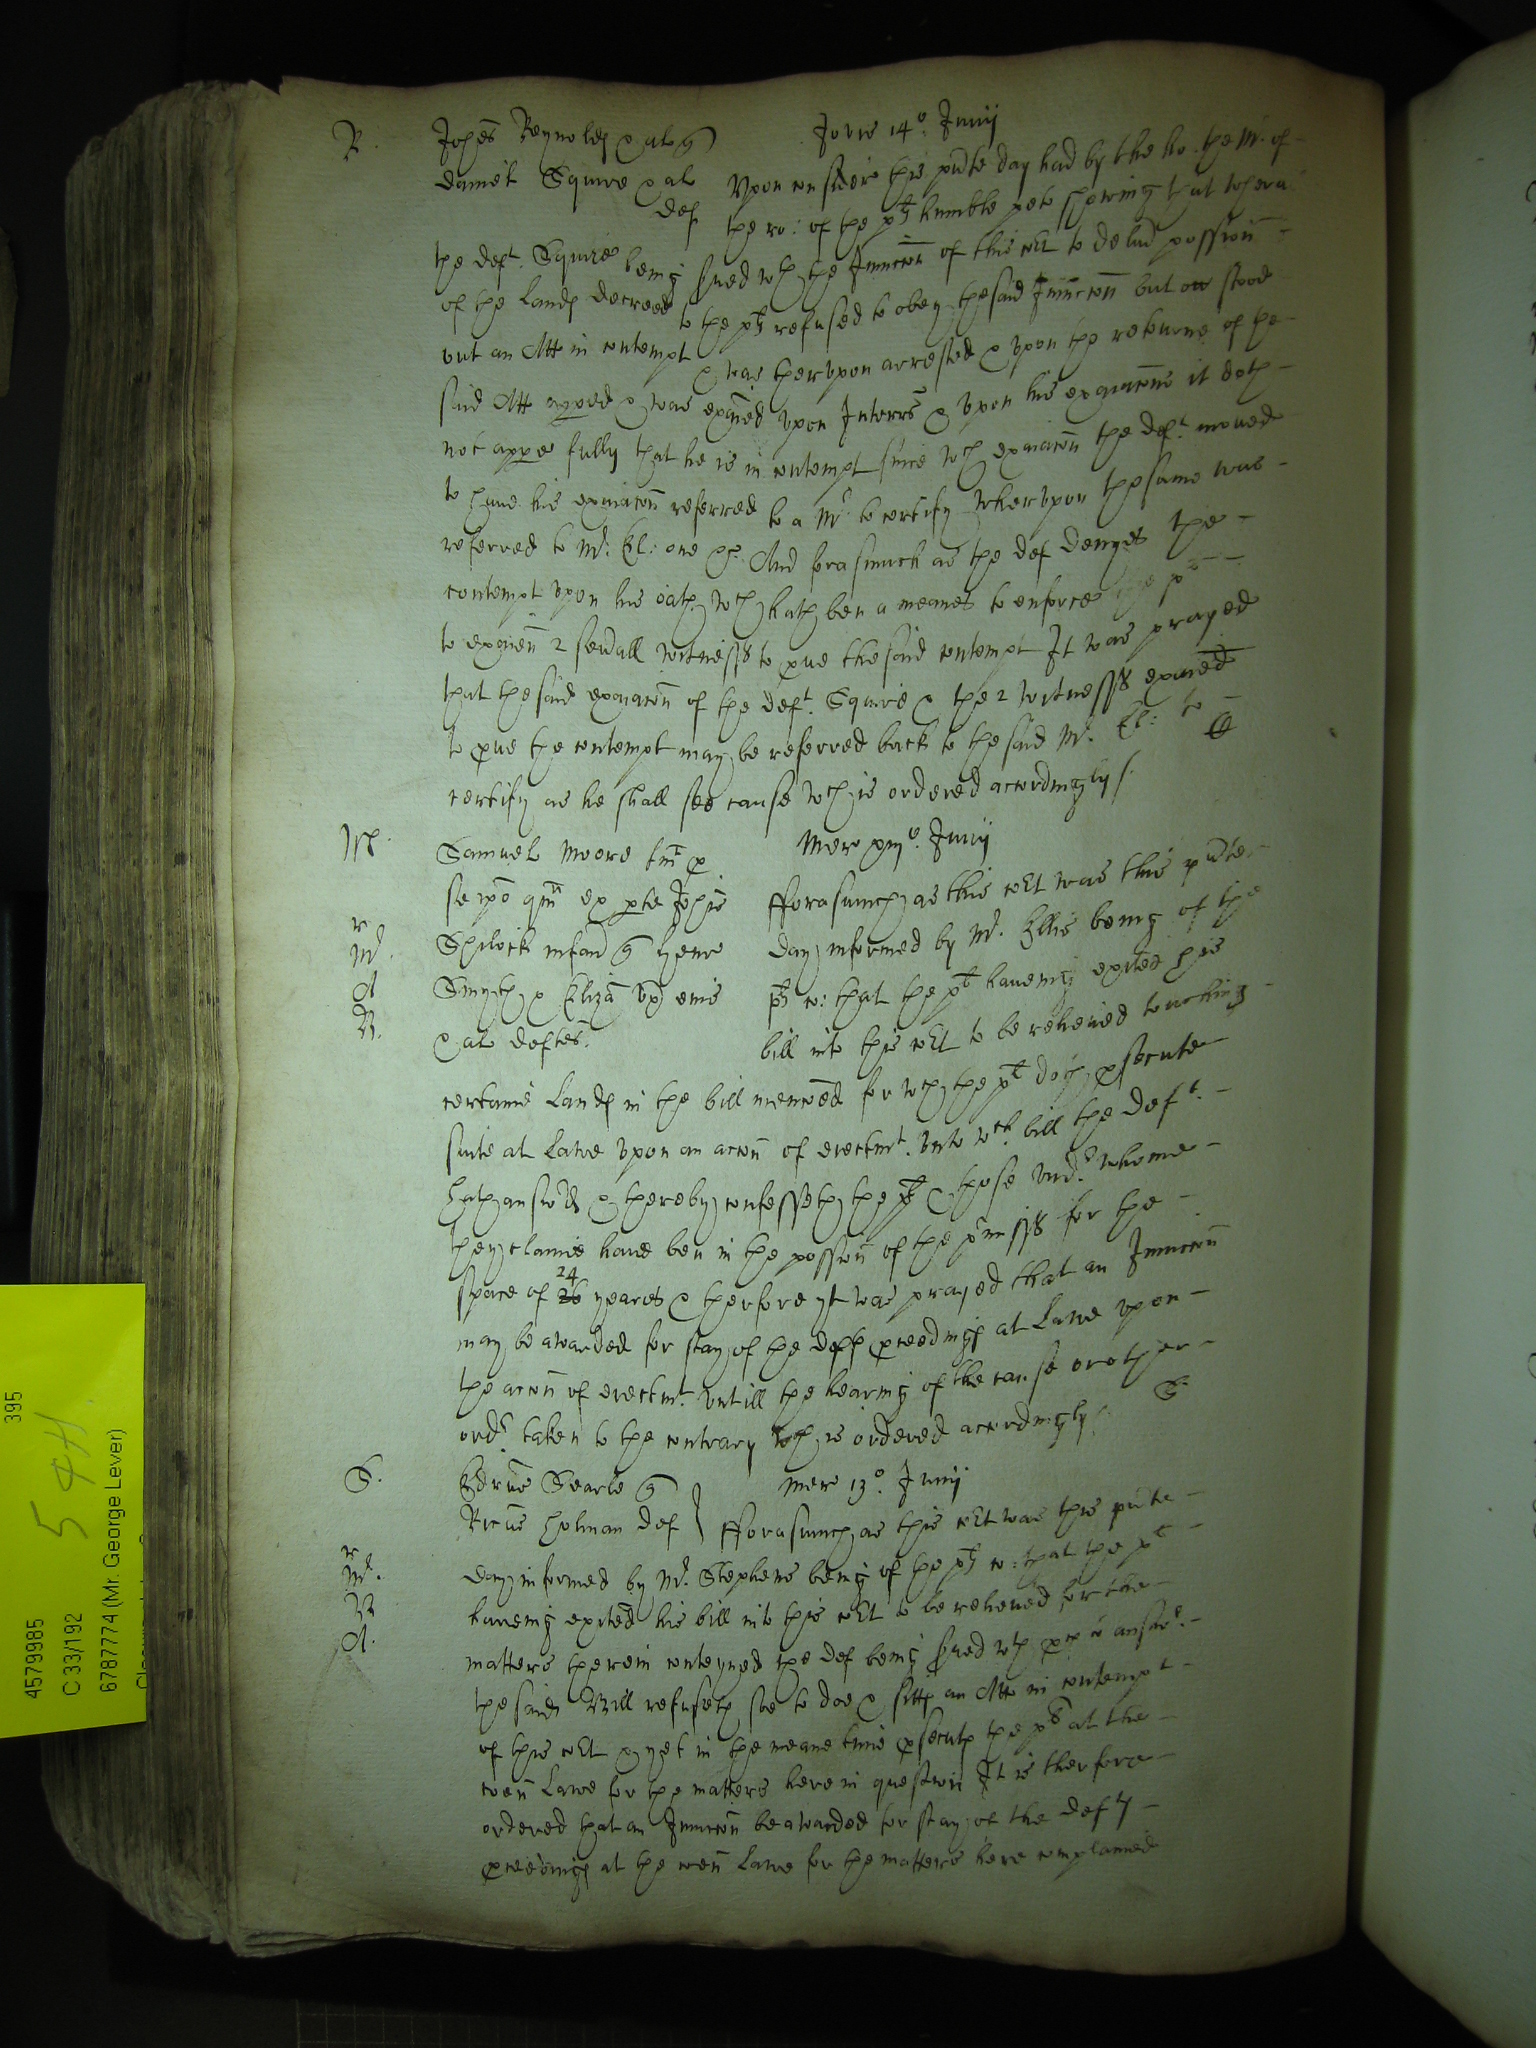 R. Johes Reynolds & al q Jovis 14o. Junij
Daniel Squire & al Vpon consideracon this pnte day had by the ho. the Mr. of
def the ro: of the plts humble peto shewing that wheras
the deft. Squire being srued wth the Iniuncon of this cot to deliu possession
of the lands decreed to the plts refused to obey the said Iniuncon but stood
out an Att in contempt & was therupon arrested & vpon the returne of the
said Att appeed & was exaied vpon Interrs & vpon his exaiacons it doth
not appe fully that he is in contempt since wch exaiacon the deft. moued
to haue his exaiacon referred to a Mr. to certify Wherupon the same was
referred to Mr. El: one &c. And forasmuch as the def denyes the
contempt vpon his oath wch hath ben a meanes to enforce the plt
to exaien 2 seuall witnesses to proue the said contempt It was prayed
that the said exaiacon of the deft. Squire & the 2 witnesses exaied
to proue the contempt may be referred back to the said Mr. El: to
certify as he shall see cause wch is ordered accordingly /.
M. Samuel Moore Mercurij xiijo. Junij
se ipo qm ex pte Johis Fforasmuch as this cot was this pnte
r Shilock infan q Henr day informed by Mr. Ellis being of the
Mr. Smyth & Eliza vx eius plts co: that the plt haueing exited his
A & al deftes. bill into this cot to be releiued touching
R.
certaine lands in the bill mencoed for wch the plt doth psecute
suite at Lawe vpon an accon of eiectmt. vnto wch. bill the deft.
hath answed & thereby confesseth the plt & those vndr. whome
they claime haue ben in the possion of the pmisses for the
24
space of 26 yeares & therfore yt was prayed that an Iniuncon
may be awarded for stay of the defts pceedings at Lawe vpon
the accon of eiectmt. vntill the hearing of the cause or other
ordr. taken to the contrary wch is ordered accordingly /.
S. Edrus Searle q Mercurij 13o. Junij
Ricus Holman def } Fforasmuch as this cot was this pnte
r
Mr. day informed by Mr. Stephens being of the plts co: that the plt
R haueing exited his bill into this cot to be releiued for the
A. matters therein conteyned the def being srued wth pces to answr.
the said Bill refuseth soe to doe & sitts an Att in contempt
of this cot & yet in the meane time psecuts the plt at the
coen Lawe for the matters here in question It is therfore
ordered that an Iniuncon be awarded for stay of the defts
pceedings at the coen Lawe for the matters here complained
395
54H.
4579985
C 33/192
6787774 (Mr. George Lever)